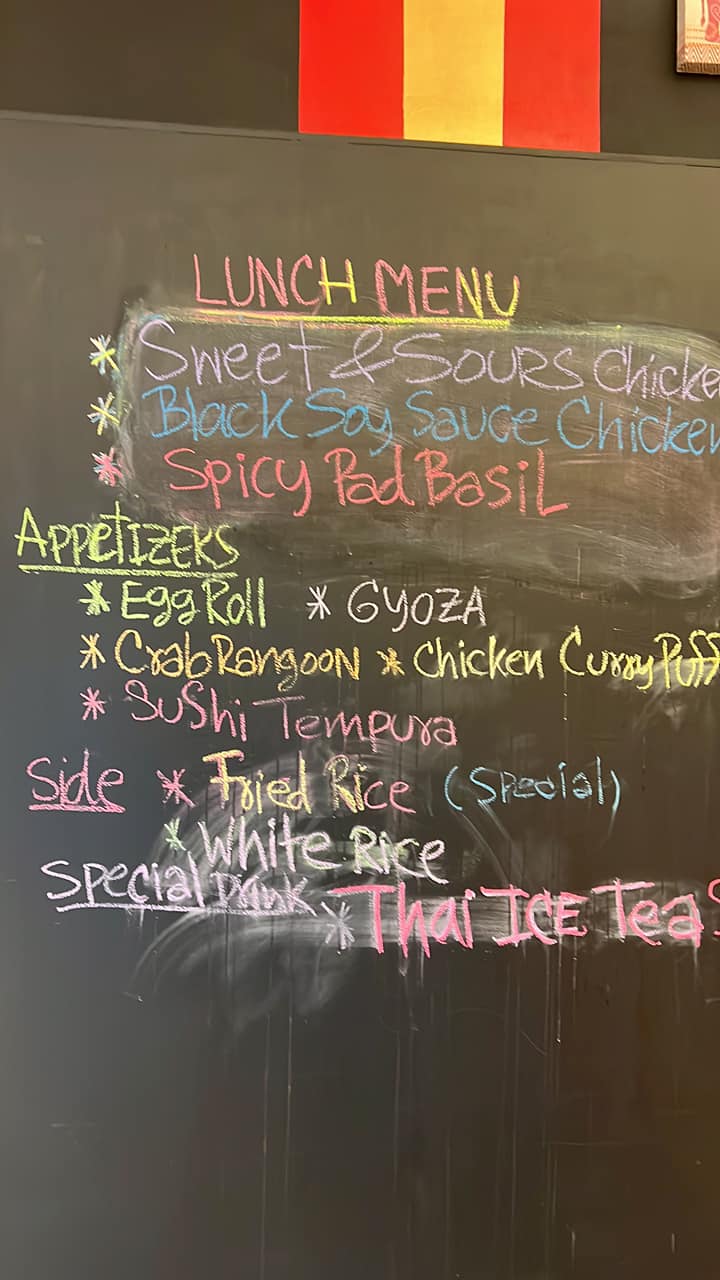 LUNCH MENU
* Sweet & Sours Chicke
* Black Soy Sauce Chicken
* Spicy Pad Basil
Appetizers
* Egg Roll * Gyoza
* Crab Rangoon * Chicken Curry Puff
* Sushi Tempura
Side * Fried Rice (Special)
* White Rice
Special Drink * Thai ICE Tea